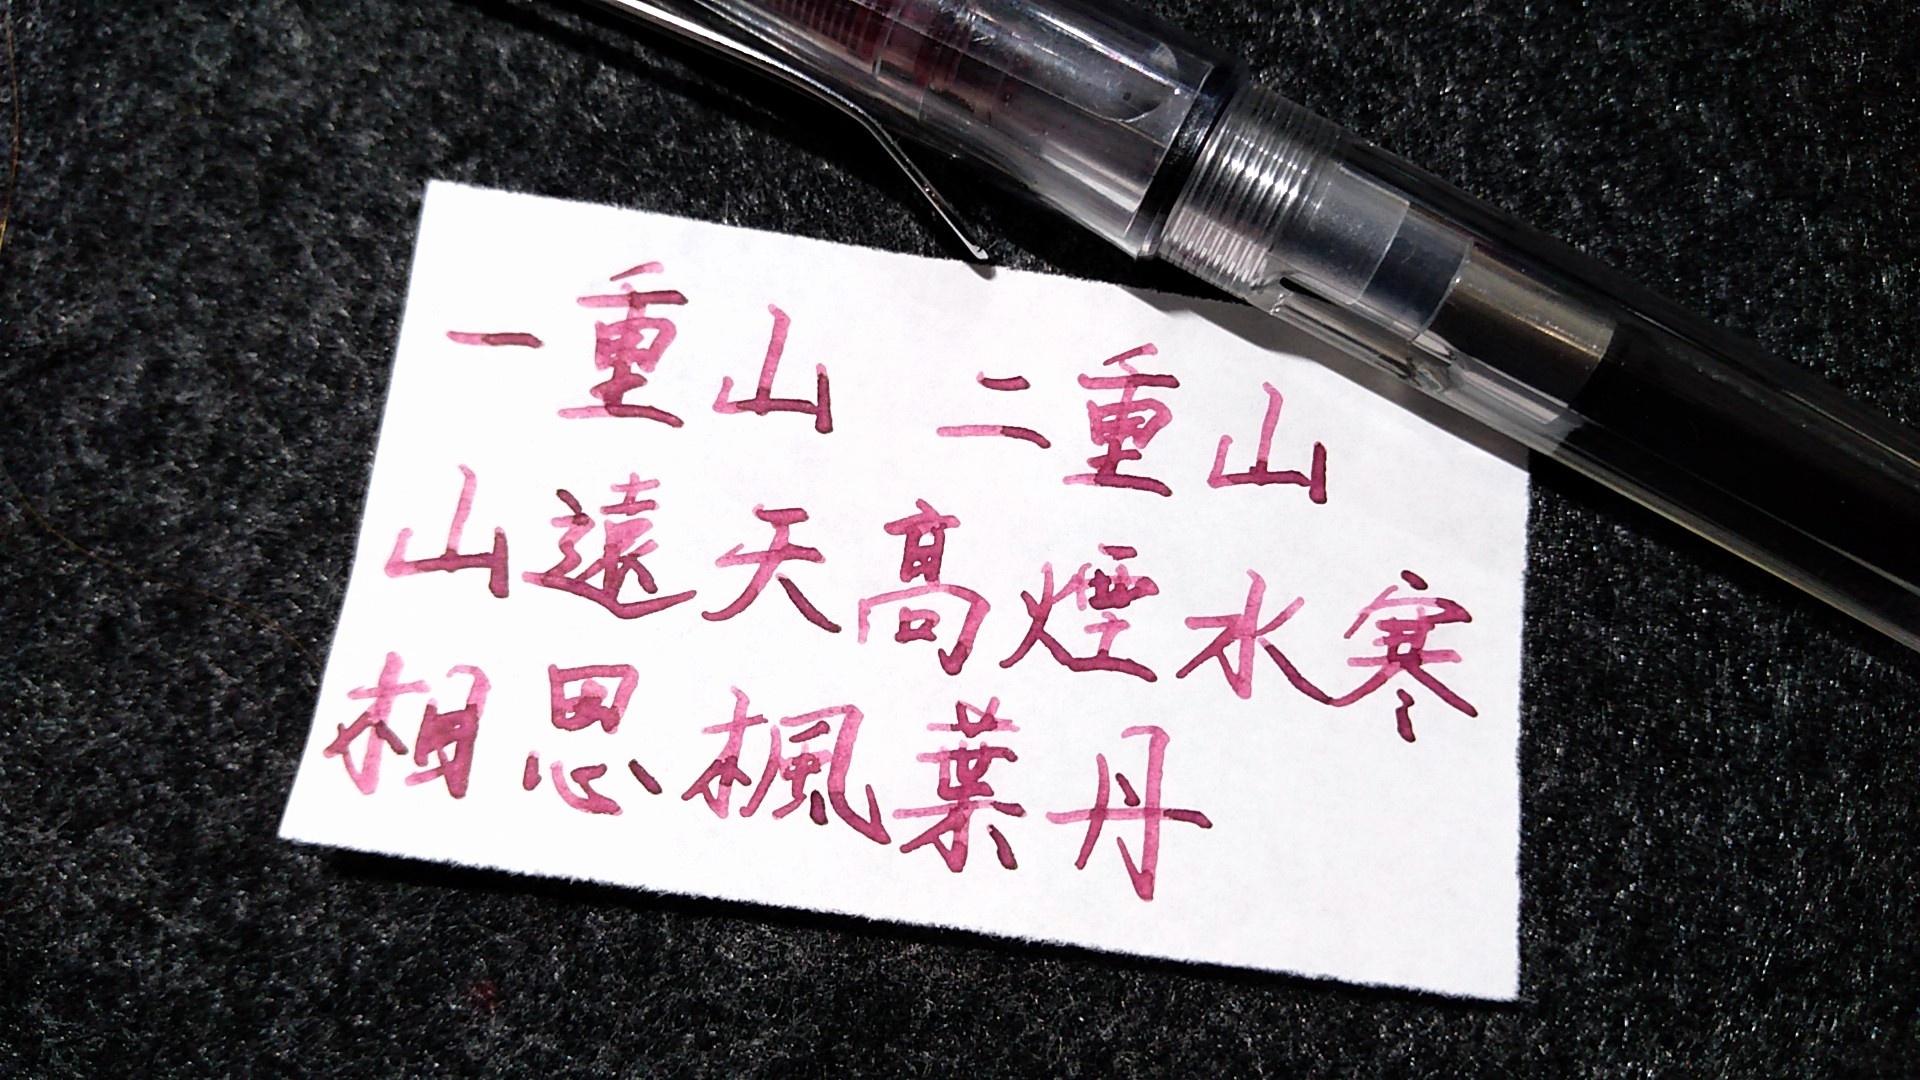 一重山 二重山
山遠天高煙水寒
相思楓葉丹